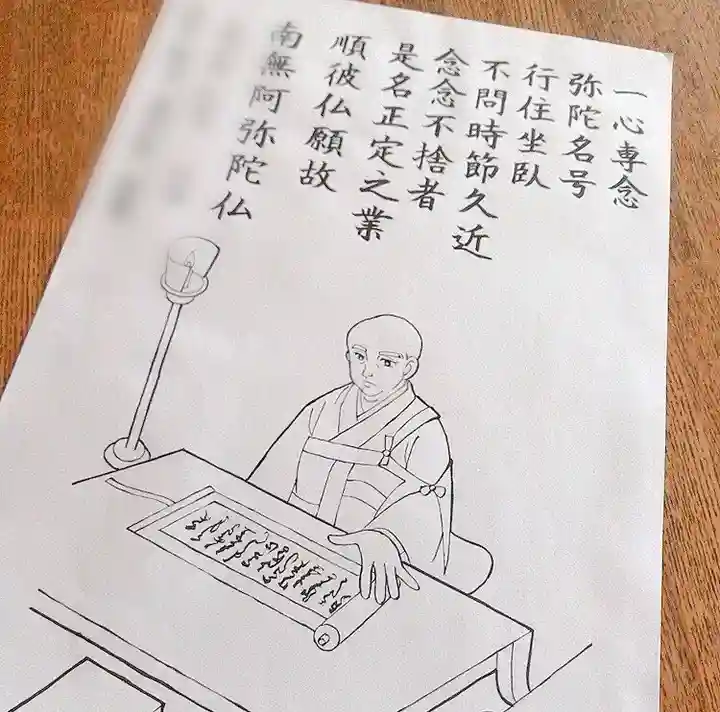 一心専念
弥陀名号
行住坐臥
不問時節久近
念念不捨者
是名正定之業
順彼仏願故
南無阿弥陀仏